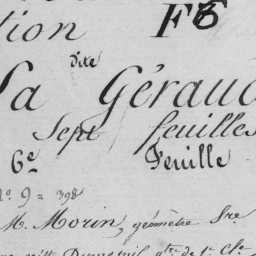 tion F6
dite
La Géraud
Sept feuilles
6e Feuille
No. 9 = 398
M. Morin, géomètre
de 1e Cle